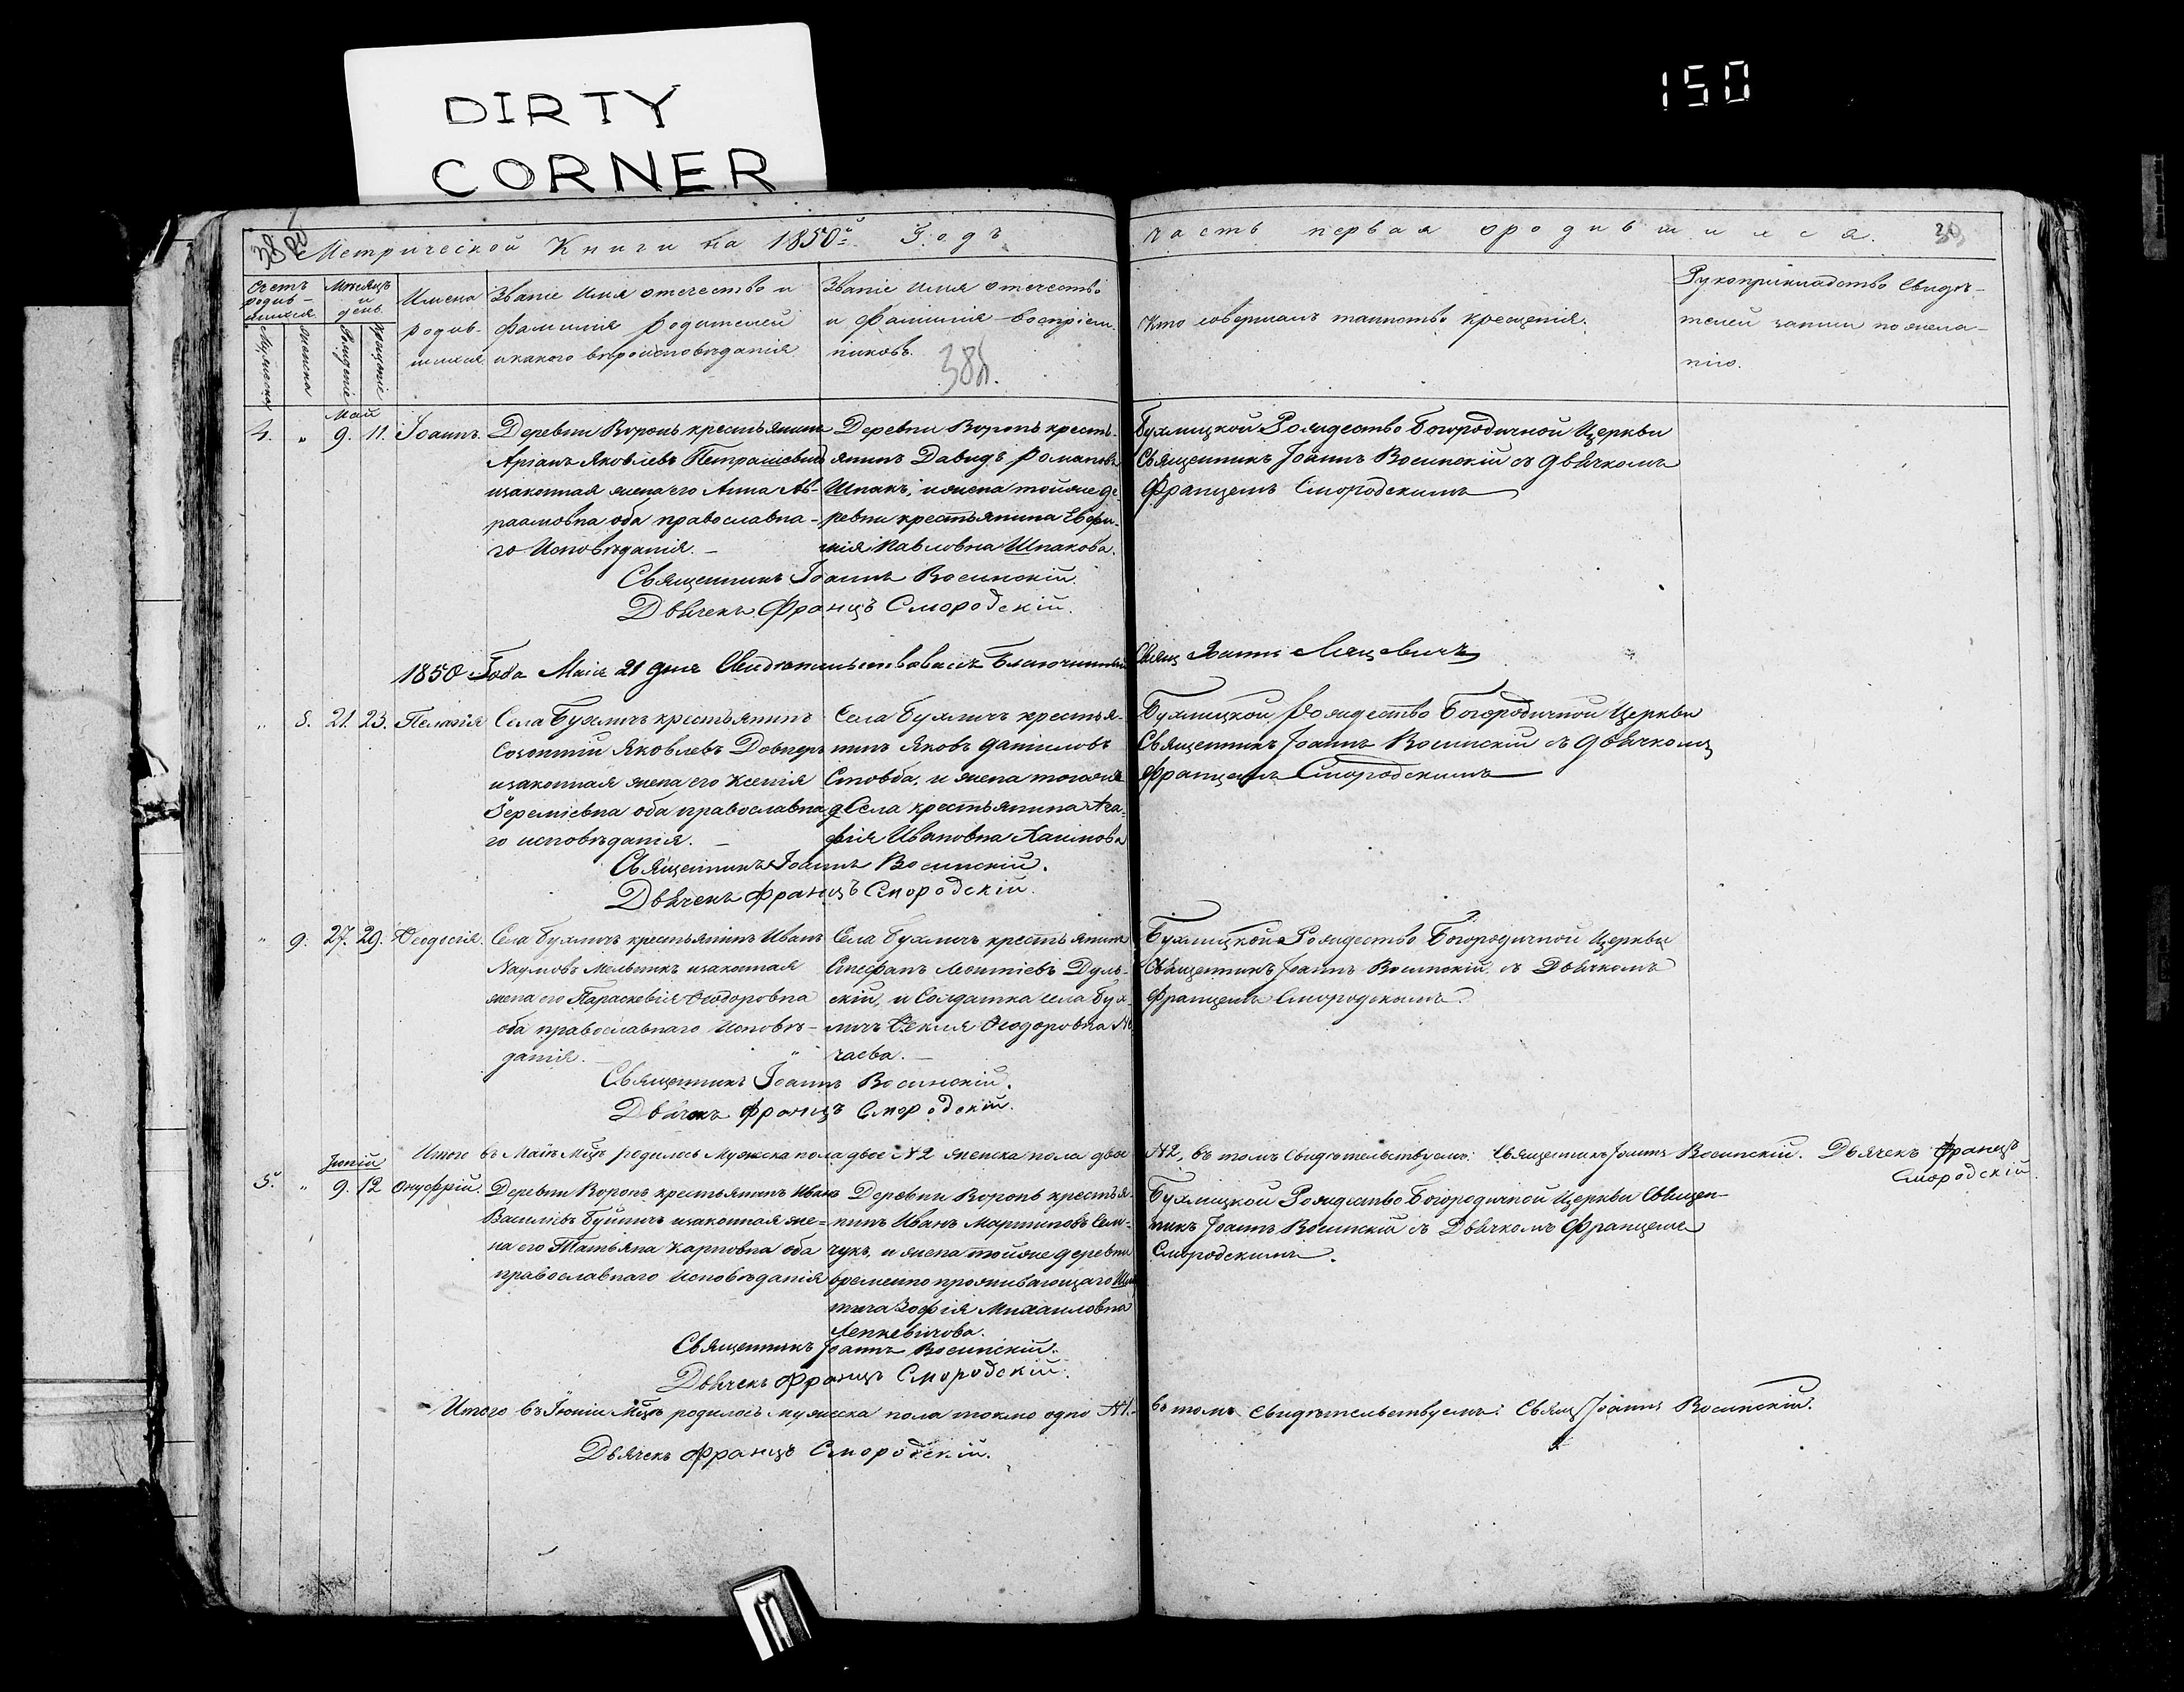 DIRTY
CORNER
150
Метрической Книги на 1850й Годъ
часть первая о родившихся.
39
Счетъ родив-шихся
Мужеска
Женска
Мѣсяцъ и день
Рожденіе
Крещеніе
Имена родив-шихся
Званіе имя отечество и
фамилія родителей
и какого вѣроисповѣданія
Званіе имя отечество
и фамилія воспріем-
никовъ.
388.
Кто совершалъ таинство крещенія.
Рукоприкладство свидѣ-
телей записи по жела-
нію.
Май
4. " 9. 11. Іоаннъ.
Деревни Воронъ крестьянинъ
Аріанъ Яковлевъ Петрашевичъ
и законная жена его Анна Ав-
раамовна оба православна-
го Исповѣданія.
Деревни Воронъ кресть-
янинъ Давидъ Романовъ
Шпакъ, и жена тойже де-
ревни крестьянина Евфи-
мія Павловна Шпакова.
Бухлицкой Рождество Богородичной Церкви
Священникъ Іоаннъ Восинскій съ дьячкомъ
Францемъ Смородскимъ
Священникъ Іоаннъ Восинскій.
Дьячекъ Францъ Смородскій.
1850 Года Маія 21 дня Свидетельствовалъ Благочинный
Свящ Іоаннъ
" 8. 21. 23. Пелагія
Села Бухличъ крестьянинъ
Созонтій Яковлевъ
и законная жена его Ксенія
Іереміевна оба православна
го исповѣданія.
Села Бухличъ крестья-
нинъ Яковъ Даниловъ
Стовба, и жена тогоже
села крестьянина Ага-
фія Ивановна
Бухлицкой Рождество Богородичной Церкви
Священникъ Іоаннъ Восинскій съ дьячкомъ
Францемъ Смородскимъ
Священникъ Іоаннъ Восинскій.
Дьячекъ Францъ Смородскій.
" 9. 27. 29. Ѳеодосія.
Села Бухличъ крестьянинъ Иванъ
Наумовъ Мельникъ и законная
жена его Параскевія Ѳеодоровна
оба православнаго Исповѣ-
данія.
Села Бухличъ крестьянинъ
Стефанъ Леонтіевъ Дуль-
скій, и Солдатка села Бух-
личъ Ѳекля Ѳеодоровна Не
чаева.
Бухлицкой Рождество Богородичной Церкви
Священникъ Іоаннъ Восинскій съ Дьячкомъ
Францемъ Смородскимъ
Священникъ Іоаннъ Восинскій.
Дьячекъ Францъ Смородскій.
Итого въ Маѣ Мцѣ родилось Мужеска пола двое №2 женска пола двое
№2, въ томъ свидѣтельствуемъ: Священникъ Іоаннъ Восинскій. Дьячекъ Францъ
Смородскій
Іюній
5. " 9. 12 Онуфрій.
Деревни Воронъ крестьянинъ Иванъ
Василіевъ и законная же-
на его Татьяна Карповна оба
православнаго Исповѣданія
Деревни Воронъ крестья-
нинъ Иванъ Мартиновъ Сем-
чукъ, и жена тойже деревни
временно проживающаго Шля
тича Зофія Михаиловна
Ленкевичова.
Бухлицкой Рождество Богородичной Церкви Священ-
никъ Іоаннъ Восинскій съ Дьячкомъ Францемъ
Смородскимъ.
Священникъ Іоаннъ Восинскій.
Дьячекъ Францъ Смородскій.
Итого въ Іюніи Мцѣ родилось мужеска пола токмо одно №1.
въ томъ свидѣтельствуемъ: Свящ Іоаннъ Восинскій.
Дьячекъ Францъ Смородскій.